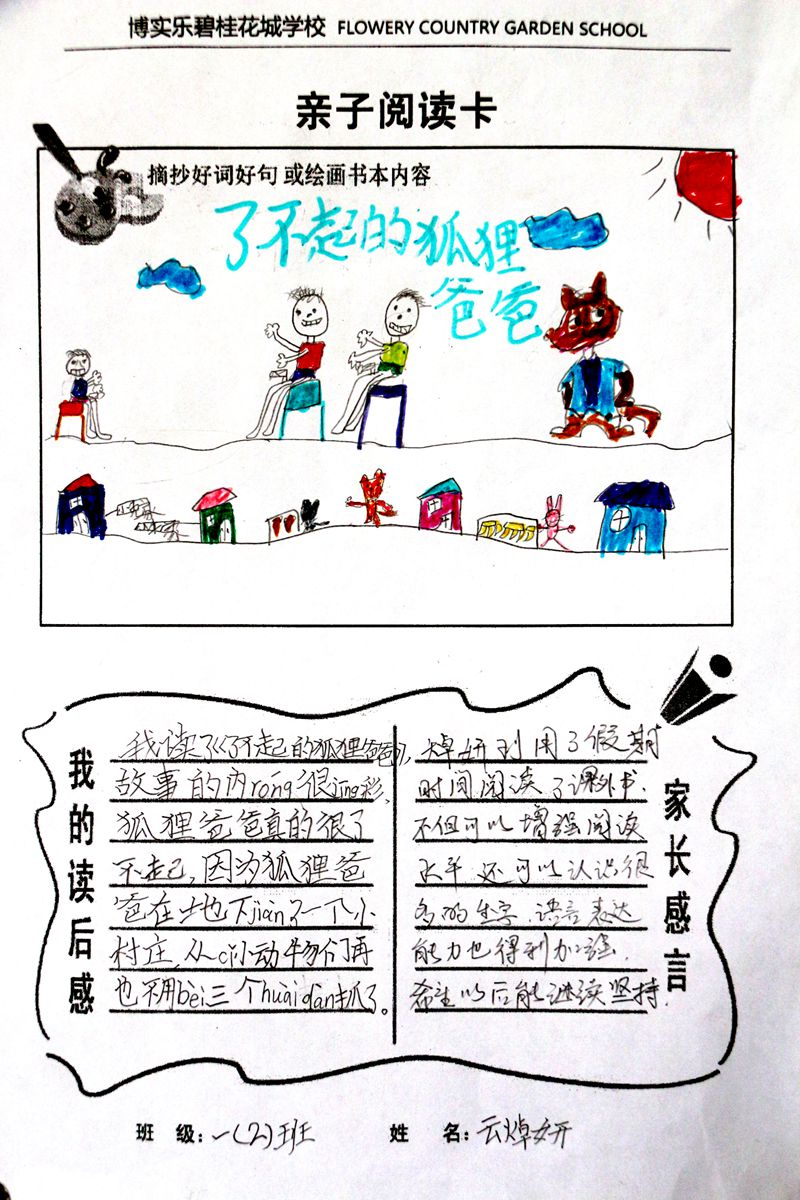 博实乐碧桂花城学校 FLOWERY COUNTRY GARDEN SCHOOL
亲子阅读卡
摘抄好词好句 或绘画书本内容
了不起的狐狸
爸爸
我的读后感
我读了《了不起的狐狸爸爸》,
故事的内róng很jing彩,
狐狸爸爸真的很了
不走己,因为狐狸爸
爸在土地下jiàn了一个小
村庄,从ci小动物们再
也不用bèi三个huàidàn抓了。
焯妍利用了假期
时间阅读了课外书.
不但可以增强阅读
水平.还可以认识很
多的生字,语言表达
能力也得到加强.
希望以后能继续坚持.
家长感言
班 级:一(2)班 姓 名:云焯妍